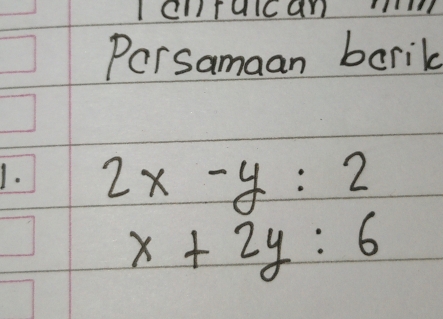 Persamaan berik
1. 2x - y : 2
x + 2y : 6